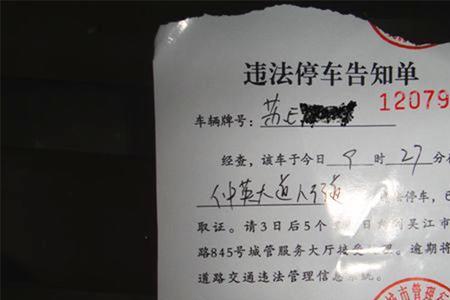 违法停车告知单
12079
车辆牌号：苏E
经查，该车于今日 9 时 27 分在
仲英大道人行道 法停车，已
取证。请3日后5个 日内到吴江市
路845号城管服务大厅接受处理。逾期将
道路交通违法管理信息系统。
城市管理